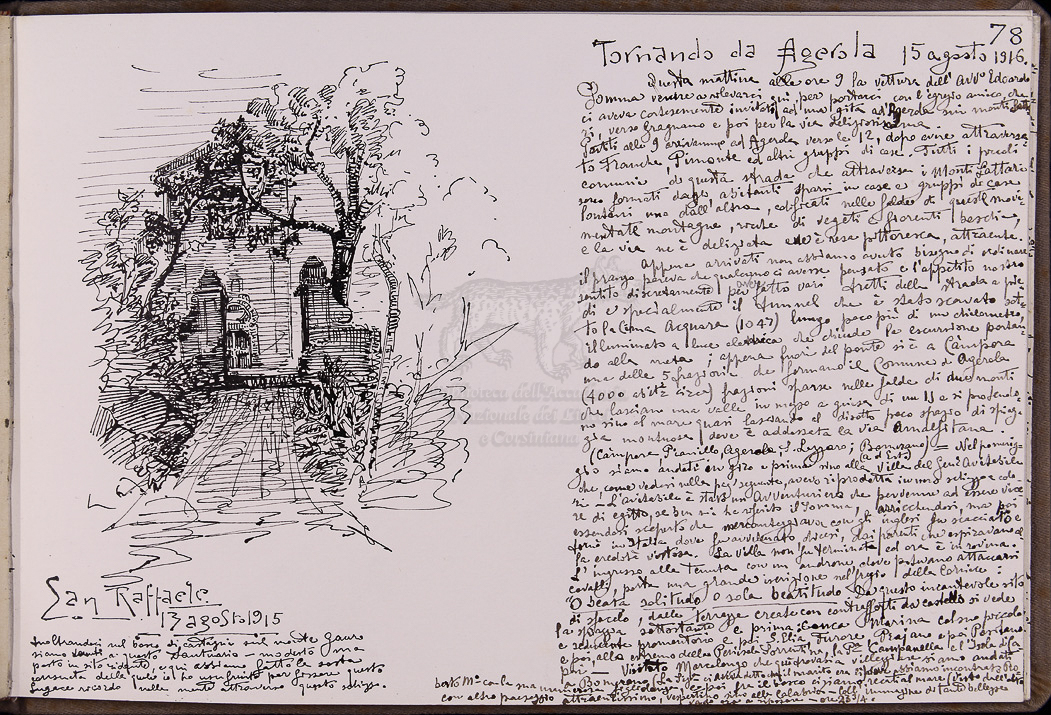 San Raffaele
13 agosto 1915
Inoltrandoci nel bosco di castagni sul monte Fauro
siamo venuti a questo Santuario — modesto ma
posto in sito ridente, e qui abbiamo fatto la sosta
consueta della quale io ho usufruito per fissare questo
fugace ricordo nella mente attraverso questo schizzo.
78
Tornando da Agerola 15 agosto 1916.
Questa mattina alle ore 9 la vettura dell'Avvº Edoardo
Somma venne a rilevarci qui per portarci con l'egregio amico, che
ci aveva cortesemente invitati ad una gita ad Agerola sui monti Latta
ri, verso Gragnano e poi per la via deliziosissima.
Partiti alle 9 arrivammo ad Agerola verso le 12, dopo avere attraversa
to Franche, Pimonte ed altri gruppi di case. Tutti i piccoli
comuni di questa strada che attraversa i Monti Lattari
sono formati dagli abitanti sparsi in case e gruppi di case
lontani uno dall'altro, edificati nelle falde di queste movi
mentate montagne, ricche di vegeti e fiorenti boschine,
e la via ne è deliziata ed è resa pittoresca, attraente.
Appena arrivati non abbiamo avuto bisogno di ordinare
il pranzo pareva che qualcuno ci avesse pensato e l'appetito nostro
sentito discretamente per fatto vari tratti della strada a pie
di e specialmente il tunnel che è stato scavato sot
to la Cima Acquara (1047) lungo poco più di un chilometro,
illuminato a luce elettrica che chiude la escursione portan
do alla meta; appena fuori del ponte si è a Campora
una delle 5 frazioni che formano il Comune di Agerola
(4000 abitz circa) frazioni sparse nelle falde di due monti
che lasciano una valle in mezzo a guisa di un U e si profonda
no sino al mare quasi lasciando al disotto poco spazio di spiag
gia montuosa dove è addossata la via Amalfitana.
(Campora Pianillo, Agerola, S. Lazzaro, Bomerano) = Nel pomerig
gio siamo andati in giro e prima sino alla Villa del Genl Avitabile
che, come vedesi nella pag. seguente, avevo riprodotta in uno schizzo a colo
ri — L'Avitabile è stato un Avventuriero che pervenne ad essere Vice
re di Egitto, se ben mi ha riferito il Somma, arricchendosi, ma poi
essendosi scoperto che mercanteggiava con gli inglesi fu scacciato e
tornò in Italia dove fu avvelenato, dicesi, dai parenti che aspiravano al
la eredità vistosa. La villa non fu terminata ed ora è in rovina.
L'ingresso alla tenuta con un androne dove potevano attaccarsi
cavalli, porta una grande iscrizione nel fregio della cornice:
"O beata solitudo O sola beatitudo" Da questo incantevole sito
di sfacelo, dalle terrazze create con contrafforti da castello si vede
la spiaggia sottostante e prima Conca Marina col suo piccolo
e seducente promontorio e poi S. Elia, Furore, Praiano e poi Positano
e poi, alla estremo della Penisola Sorrentina, la Pta Campanella e l'Isola di Ca
pri —